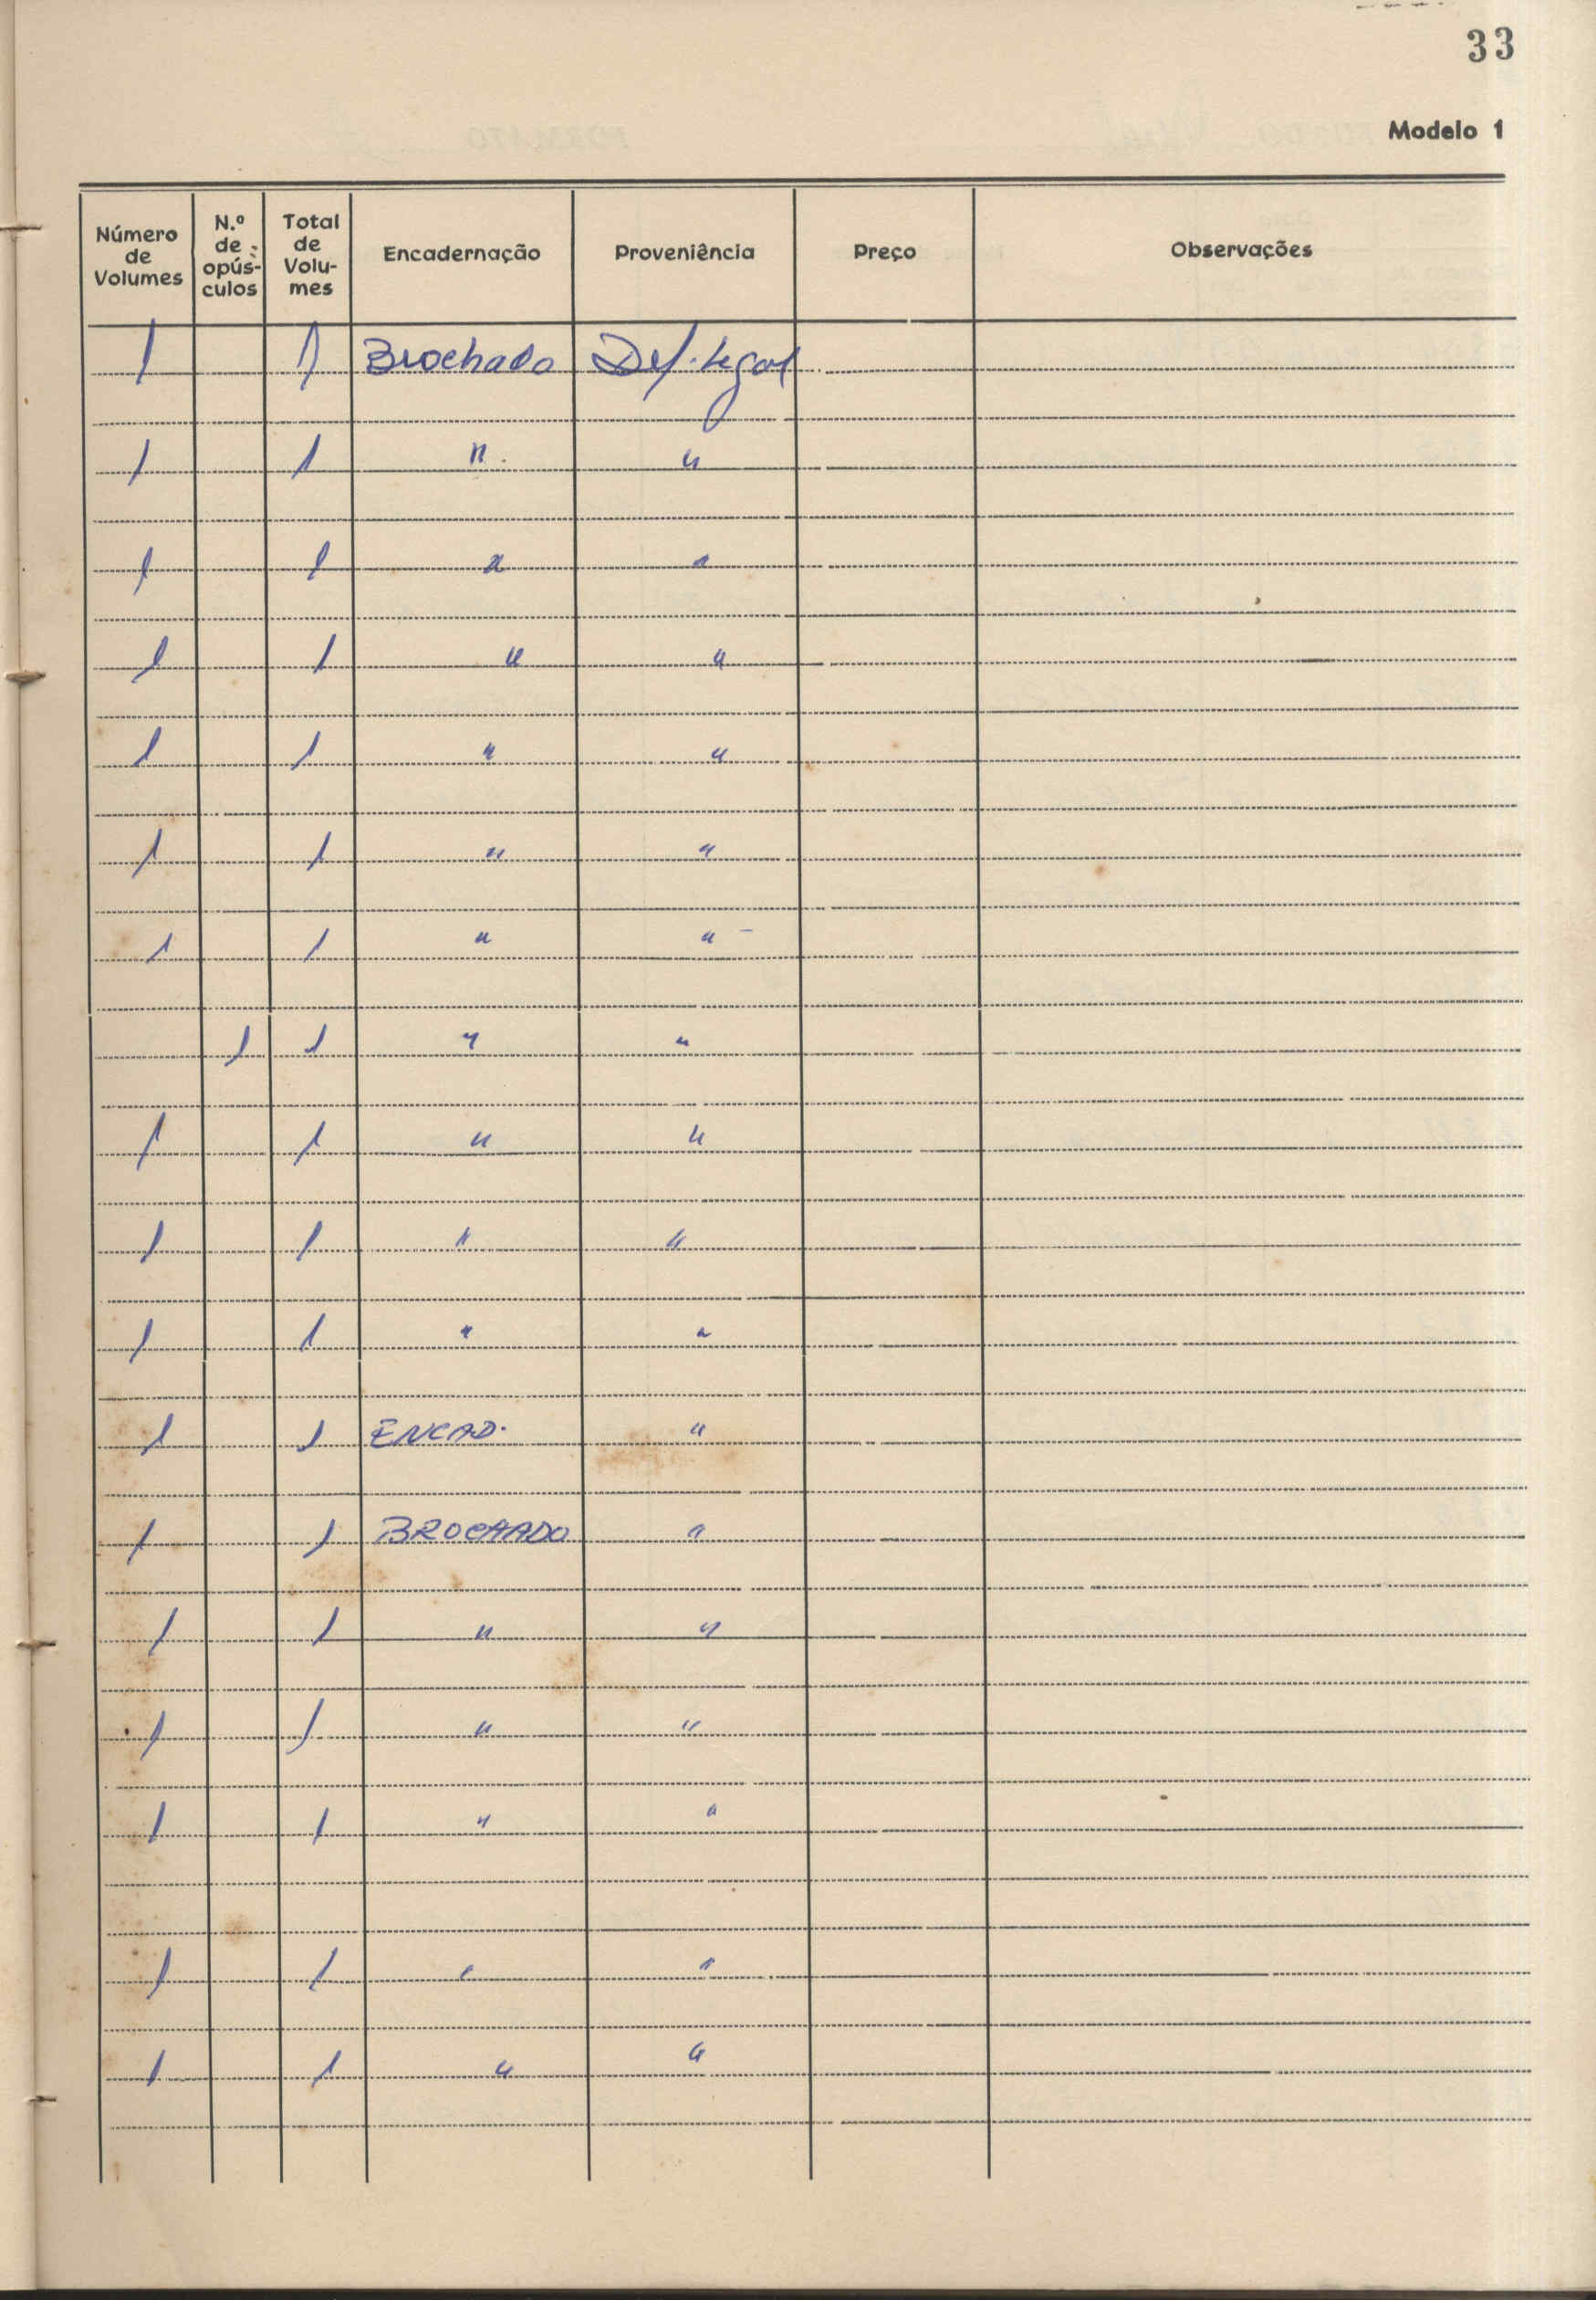 33
Modelo 1
Número de Volumes | N.º de opús-culos | Total de Volu-mes | Encadernação | Proveniência | Preço | Observações
1 | | 1 | Brochado | Dep. Legal
1 | | 1 | " | "
1 | | 1 | " | "
1 | | 1 | " | "
1 | | 1 | " | "
1 | | 1 | " | "
1 | | 1 | " | "
| 1 | 1 | " | "
1 | | 1 | " | "
1 | | 1 | " | "
1 | | 1 | " | "
1 | | 1 | ENCAD. | "
1 | | 1 | BROCHADO | "
1 | | 1 | " | "
1 | | 1 | " | "
1 | | 1 | " | "
1 | | 1 | " | "
1 | | 1 | " | "